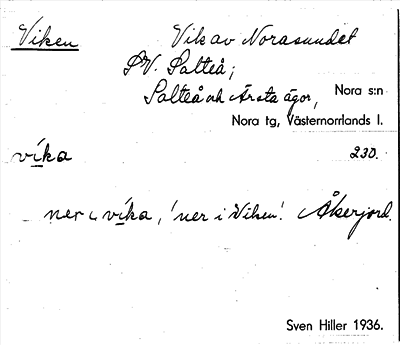 Viken Vik av Norasundet
SV. Salteå;
Salteå och Ärsta ägor, Nora s:n
Nora tg, Västernorrlands l.
vika 230.
ner i vika, 'ner i Viken'. Åkerjord.
Sven Hiller 1936.